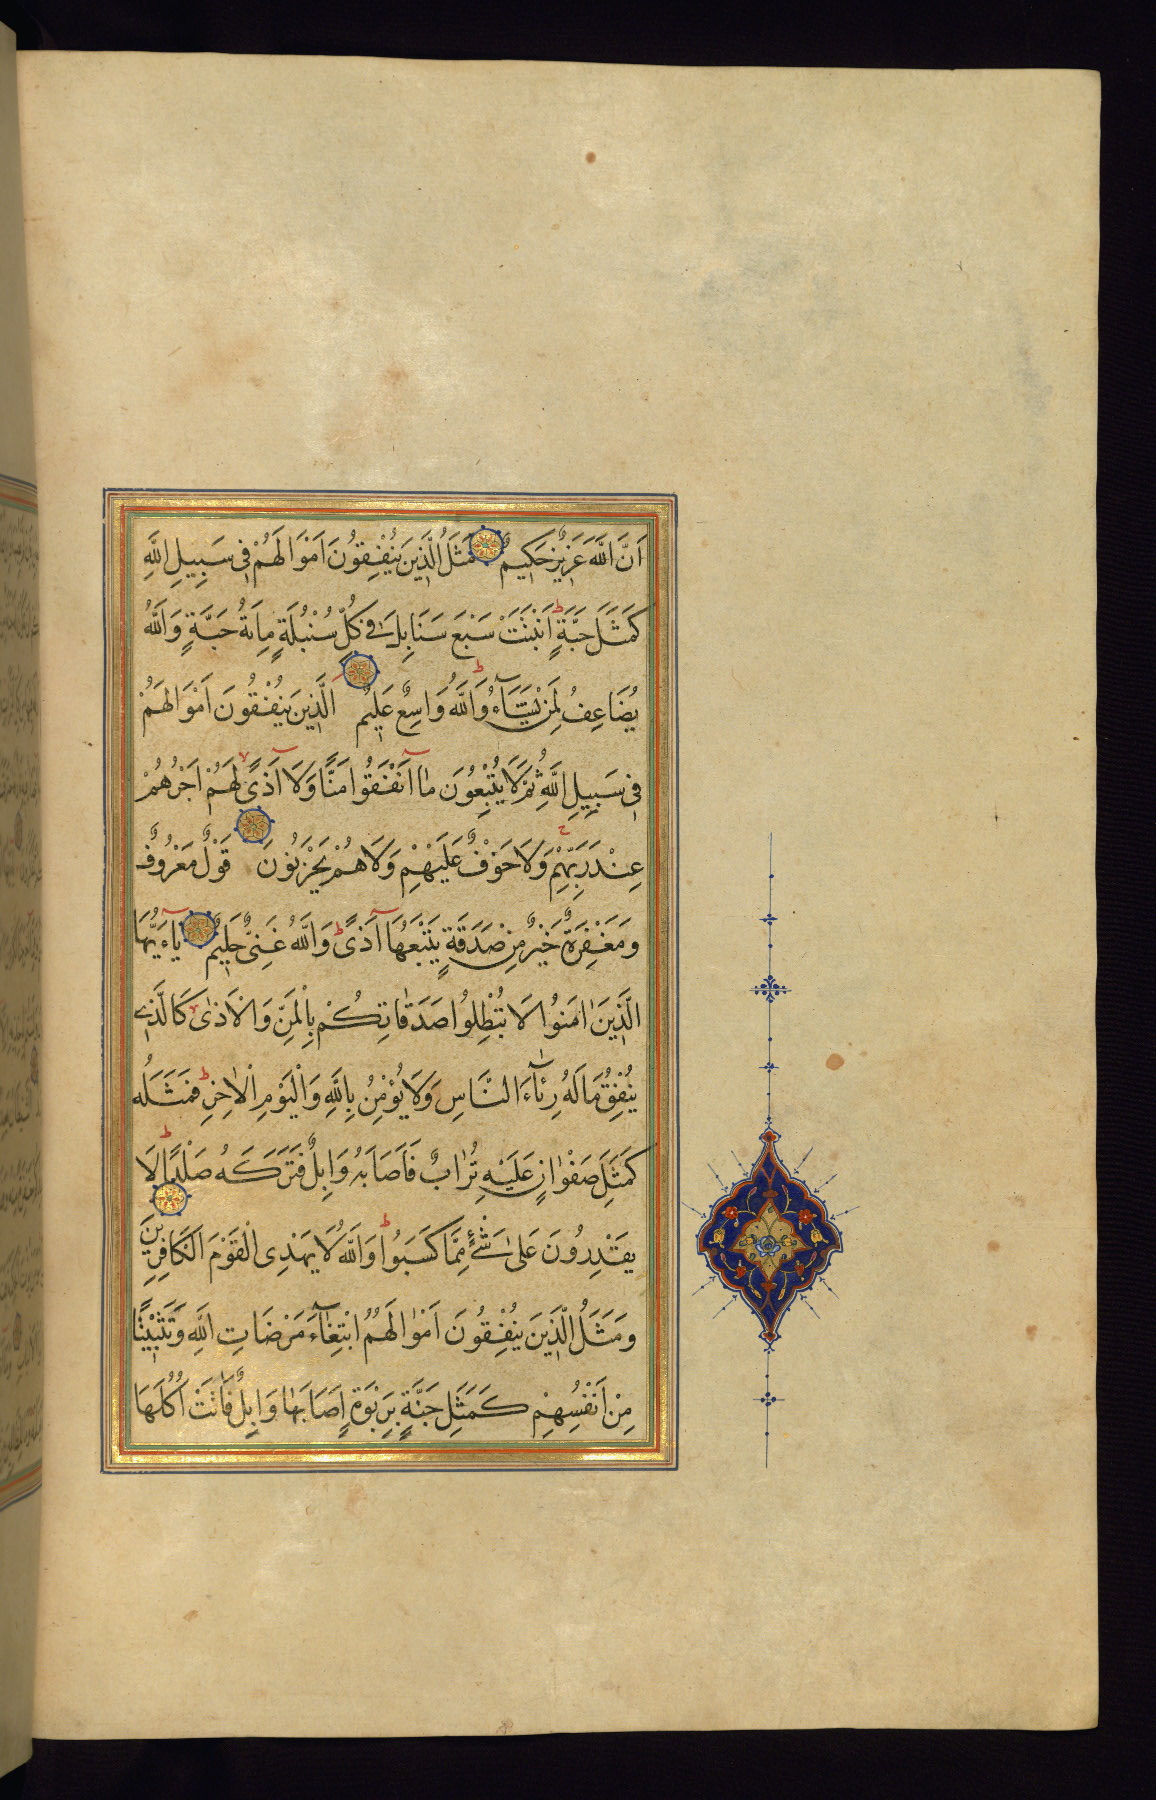 اَنَّ اللّٰهَ عَزِيزٌ حَكِيمٌ مَثَلُ الَّذِينَ يُنْفِقُونَ اَمْوَالَهُمْ فِى سَبِيلِ اللّٰهِ
كَمَثَلِ حَبَّةٍ اَنْبَتَتْ سَبْعَ سَنَابِلَ فِى كُلِّ سُنْبُلَةٍ مِاَئَةُ حَبَّةٍ وَاللّٰهُ
يُضَاعِفُ لِمَنْ يَشَآءُ وَاللّٰهُ وَاسِعٌ عَلِيمٌ الَّذِينَ يُنْفِقُونَ اَمْوَالَهُمْ
فِى سَبِيلِ اللّٰهِ ثُمَّ لَا يُتْبِعُونَ مَآ اَنْفَقُوا مَنًّا وَلَآ اَذًى لَهُمْ اَجْرُهُمْ
عِنْدَ رَبِّهِمْ وَلَا خَوْفٌ عَلَيْهِمْ وَلَا هُمْ يَحْزَنُونَ قَوْلٌ مَعْرُوفٌ
وَمَغْفِرَةٌ خَيْرٌ مِنْ صَدَقَةٍ يَتْبَعُهَآ اَذًى وَاللّٰهُ غَنِىٌّ حَلِيمٌ يَآءَيُّهَا
الَّذِينَ اٰمَنُوا لَا تُبْطِلُوا صَدَقَاتِكُمْ بِالْمَنِّ وَالْاَذٰى كَالَّذِى
يُنْفِقُ مَالَهُ رِئَآءَ النَّاسِ وَلَا يُؤْمِنُ بِاللّٰهِ وَالْيَوْمِ الْاٰخِرِ فَمَثَلُهُ
كَمَثَلِ صَفْوَانٍ عَلَيْهِ تُرَابٌ فَاَصَابَهُ وَابِلٌ فَتَرَكَهُ صَلْدًا لَا
يَقْدِرُونَ عَلٰى شَىْءٍ مِمَّا كَسَبُوا وَاللّٰهُ لَا يَهْدِى الْقَوْمَ الْكَافِرِينَ
وَمَثَلُ الَّذِينَ يُنْفِقُونَ اَمْوَالَهُمُ ابْتِغَآءَ مَرْضَاتِ اللّٰهِ وَتَثْبِيتًا
مِنْ اَنْفُسِهِمْ كَمَثَلِ جَنَّةٍ بِرَبْوَةٍ اَصَابَهَا وَابِلٌ فَاٰتَتْ اُكُلَهَا